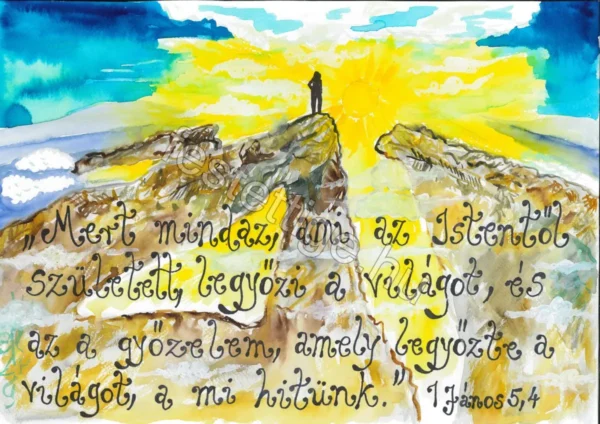 „Mert mindaz, ami az Istentől
született, legyőzi a világot, és
az a győzelem, amely legyőzte a
világot, a mi hitünk.” 1 János 5,4